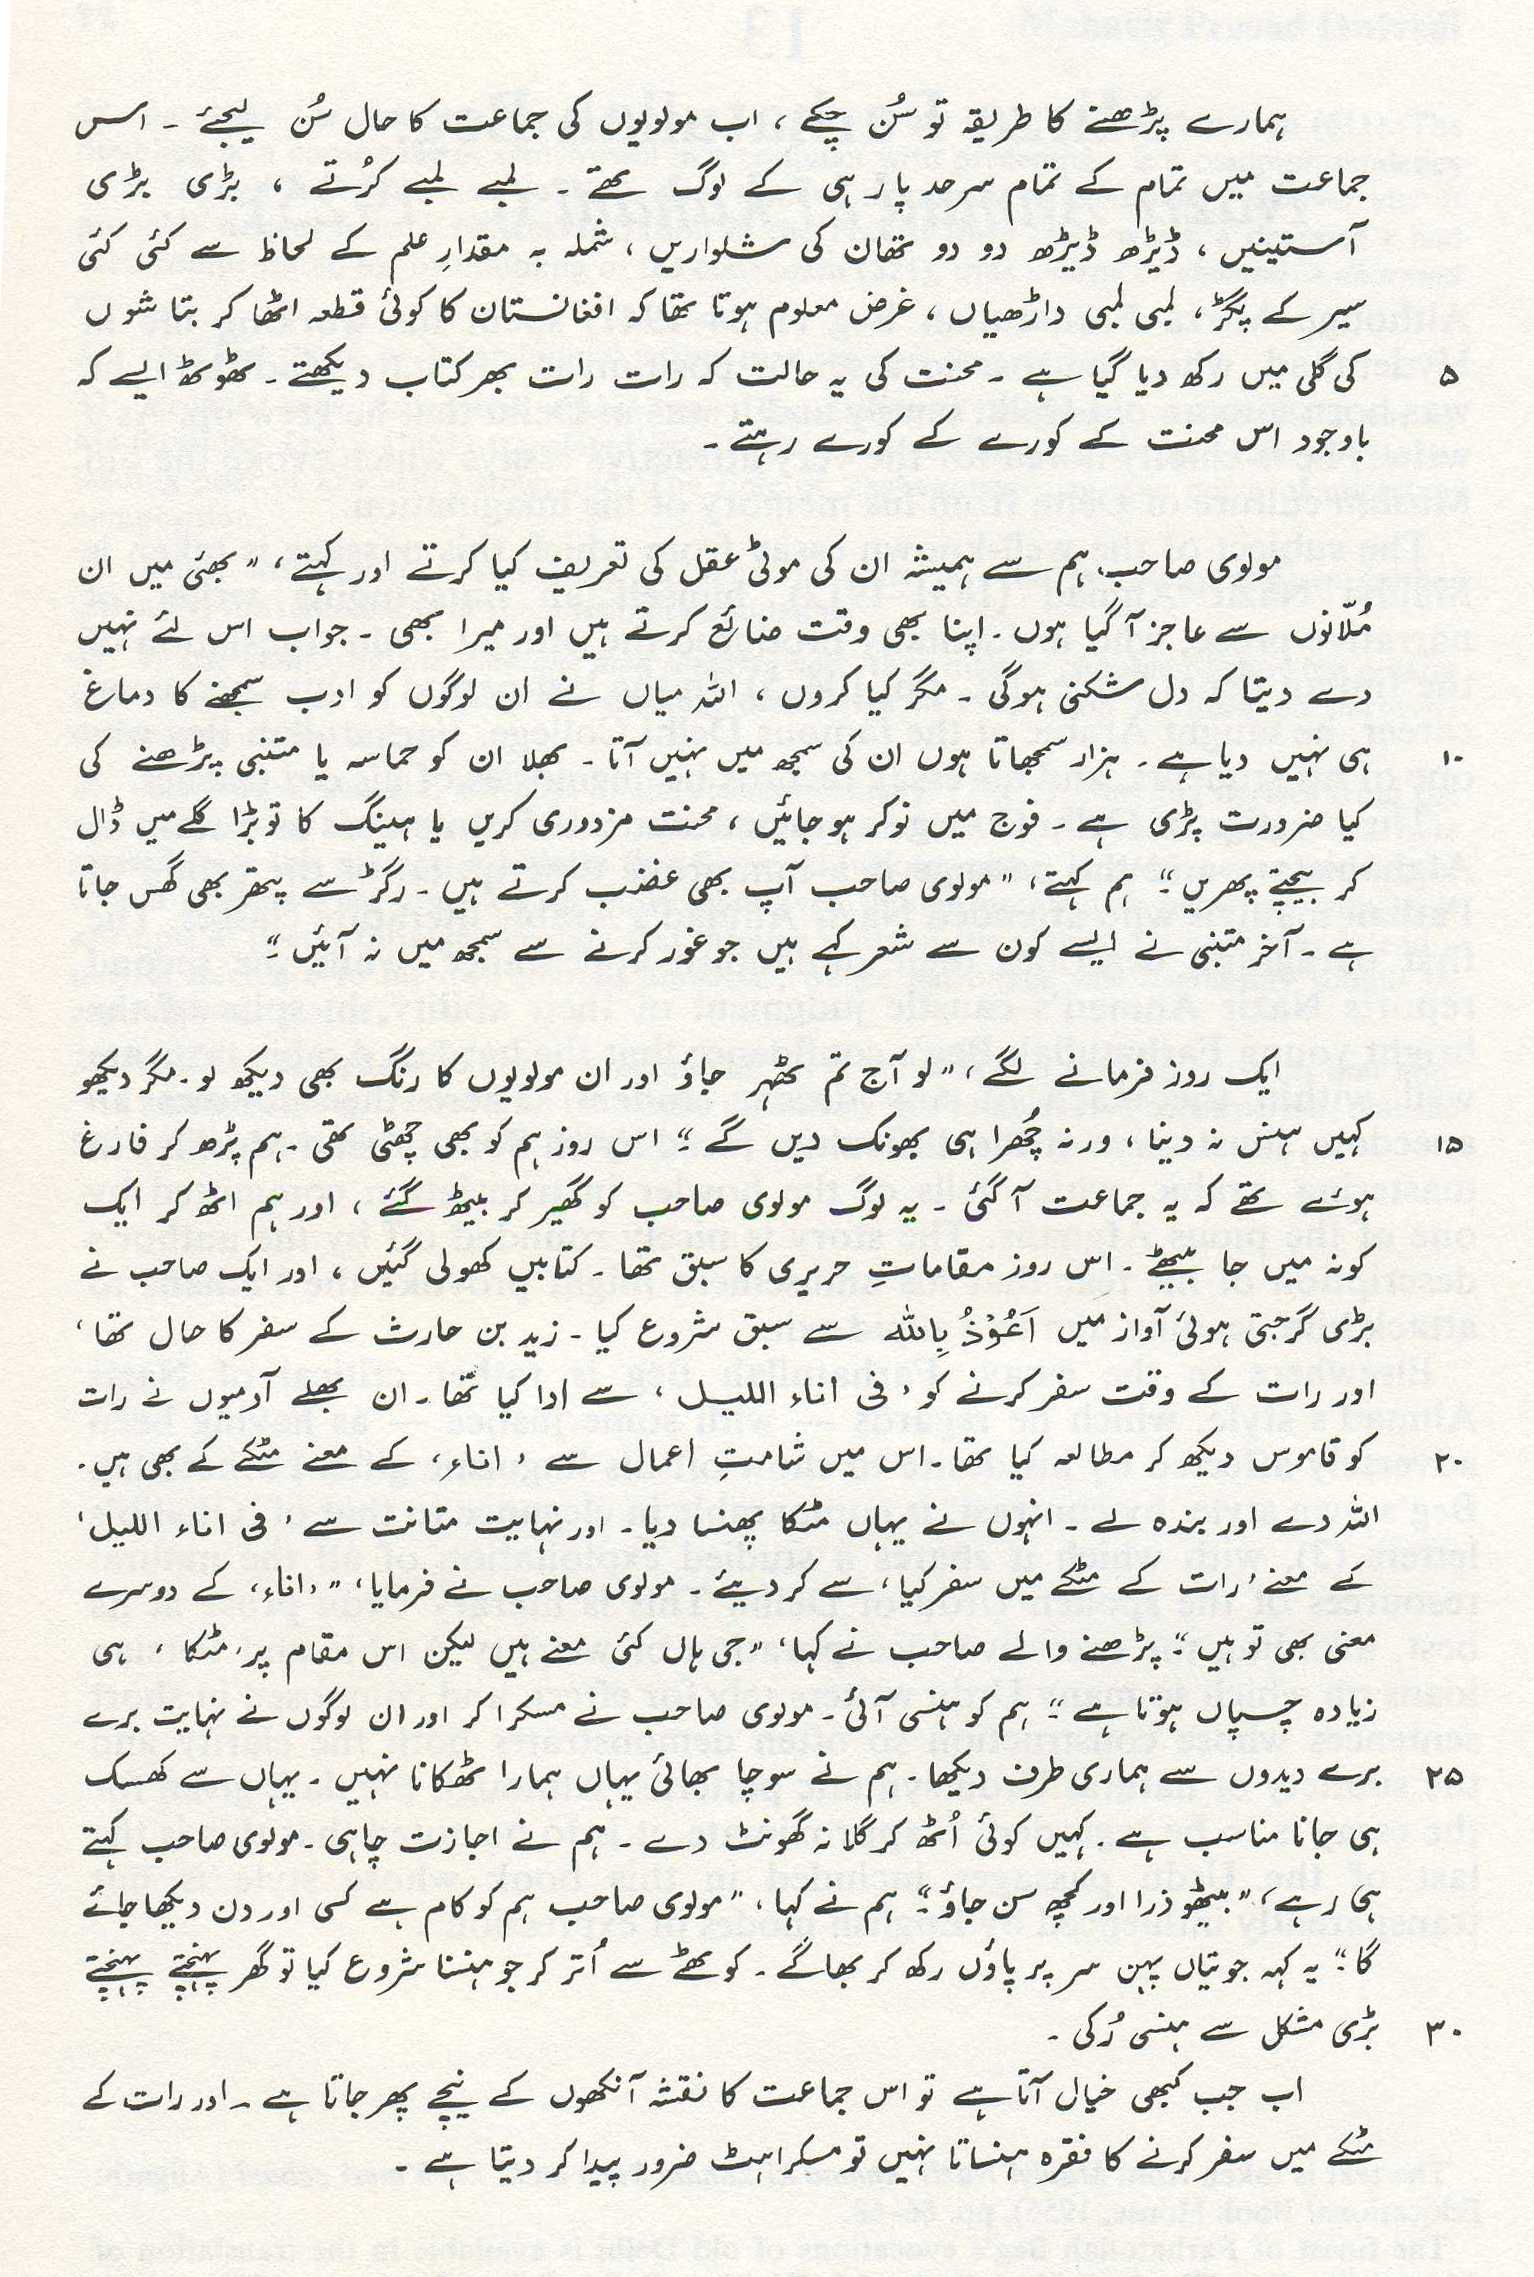 ہمارے پڑھنے کا طریقہ تو سُن چکے ، اب مولویوں کی جماعت کا حال سُن لیجئے ۔ اس
جماعت میں تمام کے تمام سرحد پار ہی کے لوگ تھے ۔ لمبے لمبے کرُتے ، بڑی بڑی
آستینیں ، ڈیڑھ ڈیڑھ دو دو تھان کی شلواریں ، شملہ بہ مقدارِ علم کے لحاظ سے کئی کئی
سیر کے پگڑ ، لمبی لمبی داڑھیاں ، غرض معلوم ہوتا تھا کہ افغانستان کا کوئی قطعہ اٹھا کر بتاشوں
کی گلی میں رکھ دیا گیا ہے ۔ محنت کی یہ حالت کہ رات رات بھر کتاب دیکھتے ۔ ٹھوٹھ ایسے کہ ۵
باوجود اس محنت کے کورے کے کورے رہتے ۔
مولوی صاحب ہم سے ہمیشہ ان کی موٹی عقل کی تعریف کیا کرتے اور کہتے ، ” بھئی میں ان
مُلّانوں سے عاجز آ گیا ہوں ۔ اپنا بھی وقت ضائع کرتے ہیں اور میرا بھی ۔ جواب اس لئے نہیں
دے دیتا کہ دل شکنی ہوگی ۔ مگر کیا کروں ، اللہ میاں نے ان لوگوں کو ادب سمجھنے کا دماغ
ہی نہیں دیا ہے ۔ ہزار سمجھاتا ہوں ان کی سمجھ میں نہیں آتا ۔ بھلا ان کو حماسہ یا متنبی پڑھنے کی ۱۰
کیا ضرورت پڑی ہے ۔ فوج میں نوکر ہو جائیں ، محنت مزدوری کریں یا ہینگ کا توبڑا گلے میں ڈال
کر بیچتے پھریں ۔“ ہم کہتے ، ” مولوی صاحب آپ بھی غضب کرتے ہیں ۔ رگڑ سے پتھر بھی گھس جاتا
ہے ۔ آخر متنبی نے ایسے کون سے شعر کہے ہیں جو غور کرنے سے سمجھ میں نہ آئیں ۔“
ایک روز فرمانے لگے ، ” لو آج تم ٹھہر جاؤ اور ان مولویوں کا رنگ بھی دیکھ لو ۔ مگر دیکھو
کہیں ہنس نہ دینا ، ورنہ چُھرا ہی بھونک دیں گے ۔“ اس روز ہم کو بھی چھٹی تھی ۔ ہم پڑھ کر فارغ ۱۵
ہوئے تھے کہ یہ جماعت آ گئی ۔ یہ لوگ مولوی صاحب کو گھیر کر بیٹھ گئے ، اور ہم اٹھ کر ایک
کونہ میں جا بیٹھے ۔ اس روز مقاماتِ حریری کا سبق تھا ۔ کتابیں کھولی گئیں ، اور ایک صاحب نے
بڑی گرجتی ہوئی آواز میں اَعُوْذُ بِاللہ سے سبق شروع کیا ۔ زید بن حارث کے سفر کا حال تھا ،
اور رات کے وقت سفر کرنے کو ’ فی اناء اللیل ‘ سے ادا کیا تھا ۔ ان بھلے آدمیوں نے رات
کو قاموس دیکھ کر مطالعہ کیا تھا ۔ اس میں شامتِ اعمال سے ’ اناء ‘ کے معنے مٹکے کے بھی ہیں ۔ ۲۰
اللہ دے اور بندہ لے ۔ انہوں نے یہاں مٹکا پھنسا دیا ۔ اور نہایت متانت سے ’ فی اناء اللیل ‘
کے معنے ’ رات کے مٹکے میں سفر کیا ‘ سے کر دیئے ۔ مولوی صاحب نے فرمایا ، ” ’ اناء ‘ کے دوسرے
معنی بھی تو ہیں ۔“ پڑھنے والے صاحب نے کہا ، ” جی ہاں کئی معنے ہیں لیکن اس مقام پر ’ مٹکا ‘ ہی
زیادہ چسپاں ہوتا ہے ۔“ ہم کو ہنسی آئی ۔ مولوی صاحب نے مسکرا کر اور ان لوگوں نے نہایت برے
برے دیدوں سے ہماری طرف دیکھا ۔ ہم نے سوچا بھائی یہاں ہمارا ٹھکانا نہیں ۔ یہاں سے کھسک ۲۵
ہی جانا مناسب ہے ۔ کہیں کوئی اُٹھ کر گلا نہ گھونٹ دے ۔ ہم نے اجازت چاہی ۔ مولوی صاحب کہتے
ہی رہے ، ” بیٹھو ذرا اور کچھ سن جاؤ ۔“ ہم نے کہا ، ” مولوی صاحب ہم کو کام ہے کسی اور دن دیکھا جائے
گا ۔“ یہ کہہ جوتیاں پہن سر پر پاؤں رکھ کر بھاگے ۔ کوٹھے سے اُتر کر جو ہنسنا شروع کیا تو گھر پہنچتے پہنچتے
بڑی مشکل سے ہنسی رُکی ۔ ۳۰
اب جب کبھی خیال آتا ہے تو اس جماعت کا نقشہ آنکھوں کے نیچے پھر جاتا ہے ۔ اور رات کے
مٹکے میں سفر کرنے کا فقرہ ہنساتا نہیں تو مسکراہٹ ضرور پیدا کر دیتا ہے ۔